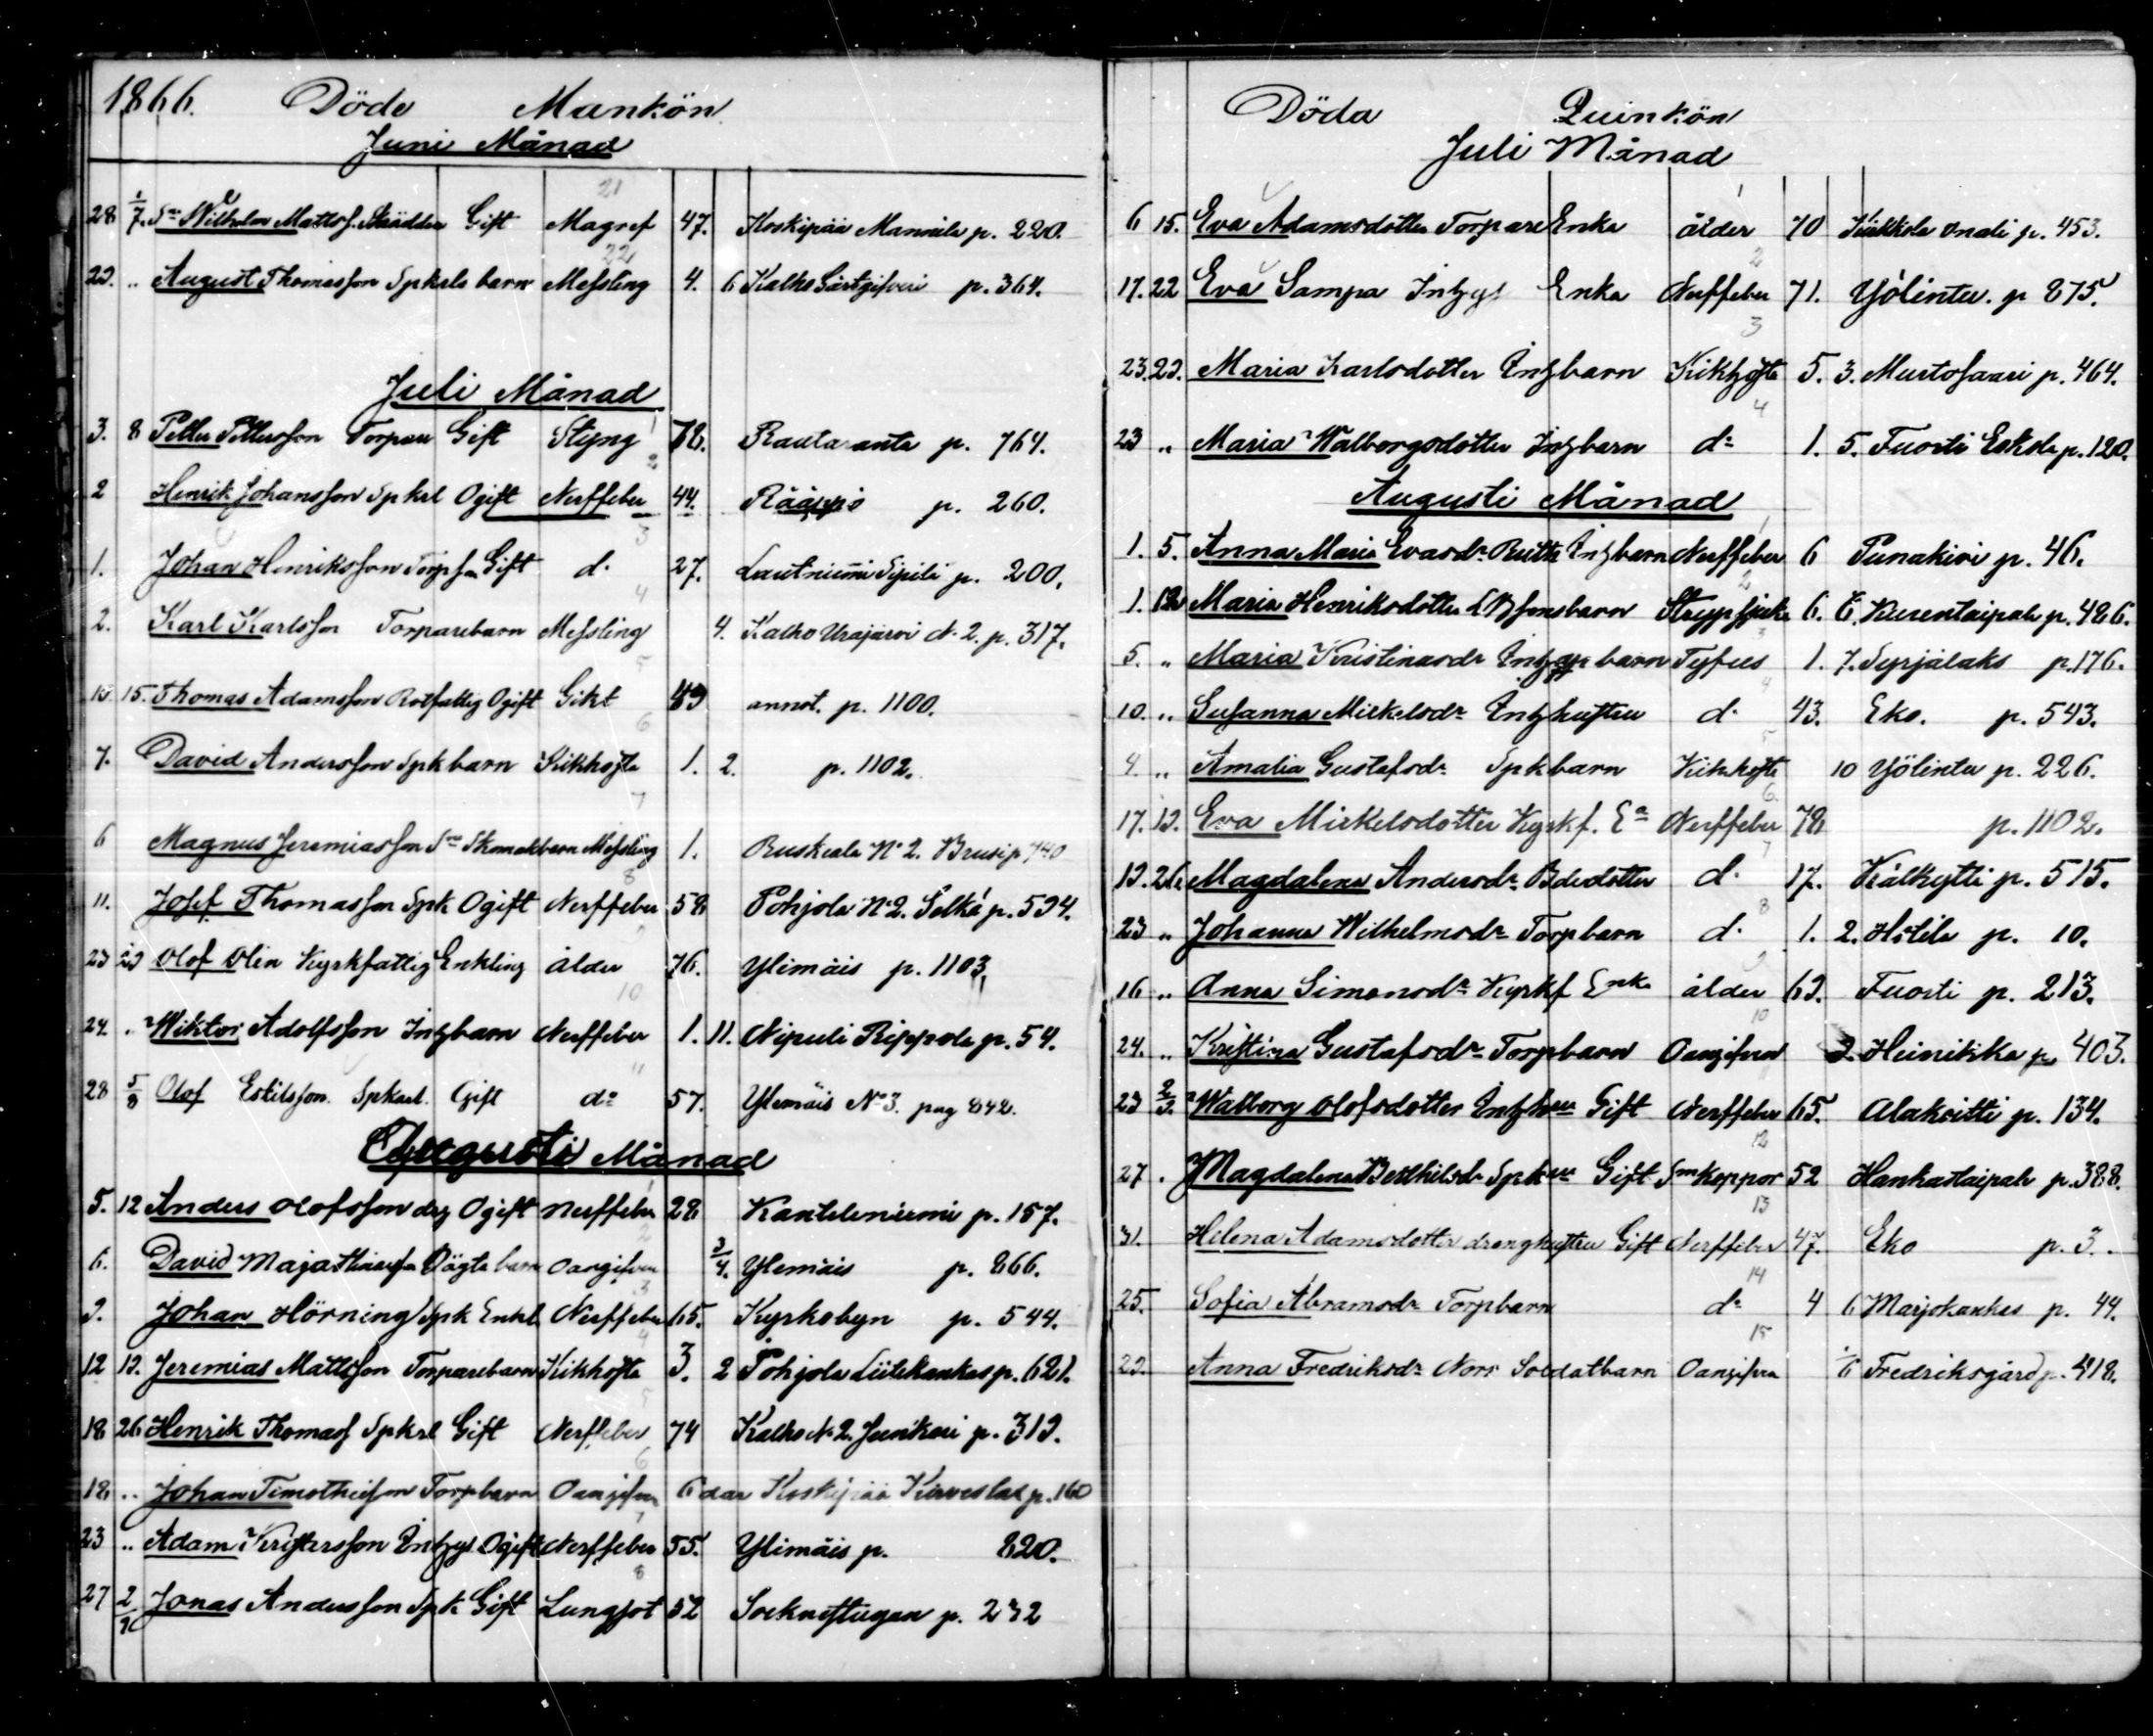 1866. Döde Mankön
Juni Månad
21
28 1/7 Wilhelm Mattsf. Skräddare Gift Magref 47. Koskipää Mannila p. 220.
22
29. " August Thomasson Spkrls barn Messling 4. 6 Kalho Gästgifveri p. 364.
Juli Månad
1
3. 8 Petter Pettersson Torpare Gift Styng 78. Rautaranta p. 764.
2
2 Henrik Johansson Spkrl Ogift Nerffeber 44. Rääppö p. 260.
3
1. Johan Henriksson Torp son Gift d:o 27. Lautniemi Sipilä p. 200.
4
2. Karl Karlsson Torparebarn Messling 4. Kalho Urajärvi N. 2. p. 317.
5
15. Thomas Adamsson Rotfattig Ogift Gikt 49 annot. p. 1100.
6
7. David Andersson Spkbarn Kikhosta 1. 2. p. 1102.
7
6 Magnus Jeremiasson Skomakbarn Messling 1. Ruskeala N:o 2. p. 740
8
11. Josef Thomasson Spk Ogift Nerffeber 58 Pohjola N:o 2. Selkä p. 594.
9
23 29 Olof Olin Kyrkfattig Enkling Ålder 76. Ylimäis p. 1103.
10
24. " Wiktor Adolfsson Inhbarn Nerffeber 1. 11. Nipuli Rippola p. 54.
11
28 5/8 Olof Eskilsson. Spkarl. Gift d:o 57. Ylemäis N:o 3. pag 842.
Augusti Månad
1
5. 12 Anders Olofsson drg Ogift Nerffeber 28 Kanteleniemi p. 157.
2
6. David Maja barn Oangifven 3/4. Ylemäis p. 866.
3
9. Johan Hörning Spk Enkl. Nerffeber 65. Kyrkobyn p. 544.
4
12 19. Jeremias Mattsson Torparebarn Kikhosta 3. 2 Pohjola Liitekankas p. 621.
5
18 26 Henrik Thomass Spkrl Gift Nerffeber 74 Kalho N:o 2. Junkari p. 319.
6
18. " Johan Timotheusson Torpbarn Oangifven 6 dar Koskipää p. 160
7
23 " Adam Kristersson Inhys Ogift Nerffeber 55. Ylimäis p. 820.
8
27 2/9 Jonas Andersson Spk Gift Lungsot 52 Sockenstugan p. 232
Döda Quinkön
Juli Månad
1
6 15. Eva Adamsdotter Torpare Enka ålder 70 Kirkkola Onali p. 453.
2
17. 22 Eva Sampa Inhys Enka Nerffeber 71. Yölintu. p 875.
3
23. 29. Maria Karlsdotter Inhbarn Kikhosta 5. 3. Mustosaari p. 464.
4
23 " Maria Walborgsdotter Inhbarn d:o 1. 5. Fuosti Eskola p. 120.
Augusti Månad
1
1. 5. Anna Maria Evasdr Ruth Inhbarn Nerffeber 6 Punakivi p. 46.
2
1. 12 Maria Henriksdotter barn Strypsjuka 6. 6. Kurentaipale p. 486.
3
5. " Maria Kristinasdr Inhys barn Tyfus 1. 7. Syrjälaks p. 176.
4
10. " Susanna Mickelsdr Inhhustru d:o 43. Eko. p. 543.
5
4. " Amalia Gustafsdr Spkbarn Kikhosta 10 Yölintu p. 226.
6.
17. 19. Eva Mickelsdotter Kyrkf. Ea Nerffeber 78 p. 1102.
7
19. 26. Magdalena Andersdr Bdedotter d:o 17. Kälkytti p. 515.
8
23 " Johanna Wilhelmsdr Torpbarn d:o 1. 2. Hölilä p. 10.
9
16 " Anna Simonsdr Kyrkf Enka ålder 69. Fuosti p. 213.
10
24. " Kristina Gustafsdr Torpbarn Oangifven 3. Heinikka p. 403.
11
23 2/9. Walborg Olofsdotter Inhhru Gift Nerffeber 65. Alakoitti p. 134.
12
27. Magdalena Berthilsdr Spkhru Gift Smkoppor 52 Hankastaipale p. 388.
13
31. Helena Adamsdotter dränghustru Gift Nerffeber 47. Eko p. 3.
14
25. Sofia Abramsdr Torpbarn d:o 4 6 Marjokankas p. 44.
15
29. Anna Fredriksdr Nors Soldatbarn Oangifven 1/6 Fredriksgård p. 418.